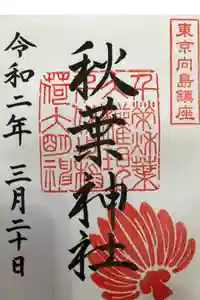 東京向島鎮座
秋葉神社
令和二年 三月二十日